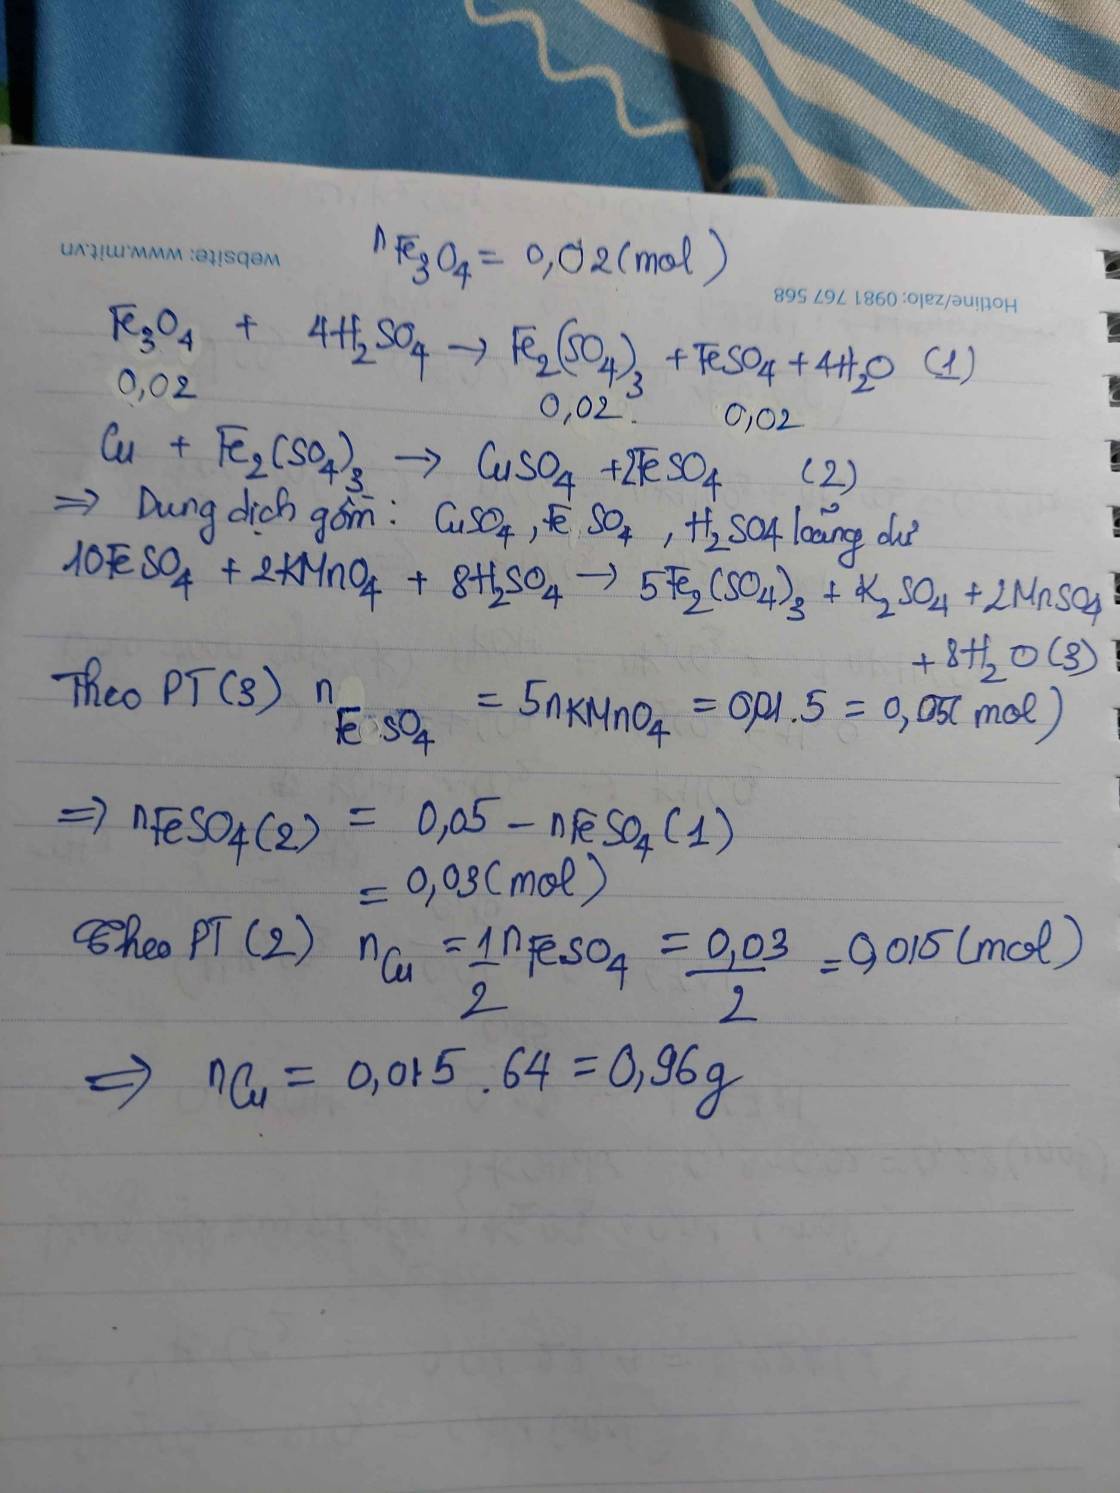 website: www.mit.vn
nFe3O4 = 0,02 (mol)
Hotline/zalo: 0981 767 568
Fe3O4 + 4H2SO4 → Fe2(SO4)3 + FeSO4 + 4H2O (1)
0,02 0,02 0,02
Cu + Fe2(SO4)3 → CuSO4 + 2FeSO4 (2)
⇒ Dung dịch gồm: CuSO4, FeSO4, H2SO4 loãng dư
10FeSO4 + 2KMnO4 + 8H2SO4 → 5Fe2(SO4)3 + K2SO4 + 2MnSO4
+ 8H2O (3)
Theo PT (3) nFeSO4 = 5nKMnO4 = 0,01.5 = 0,05 (mol)
⇒ nFeSO4 (2) = 0,05 - nFeSO4 (1)
= 0,03 (mol)
Theo PT (2) nCu = 1/2 nFeSO4 = 0,03/2 = 0,015 (mol)
⇒ nCu = 0,015 . 64 = 0,96g